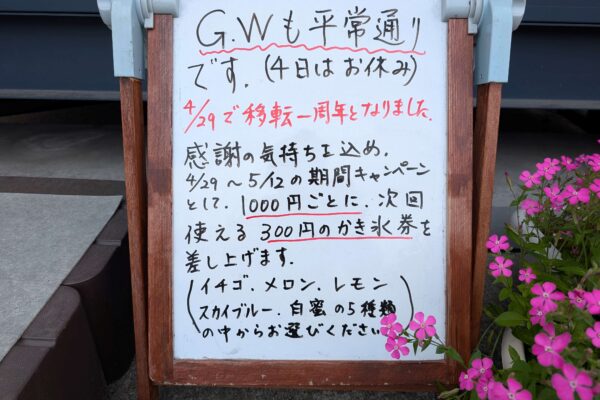 G.Wも平常通り
です。(4日はお休み)
4/29で移転一周年となりました。
感謝の気持ちを込め、
4/29～5/12の期間キャンペーン
として、1000円ごとに、次回
使える300円のかき氷券を
差し上げます。
(イチゴ、メロン、レモン
スカイブルー、白蜜の5種類
の中からお選びください)